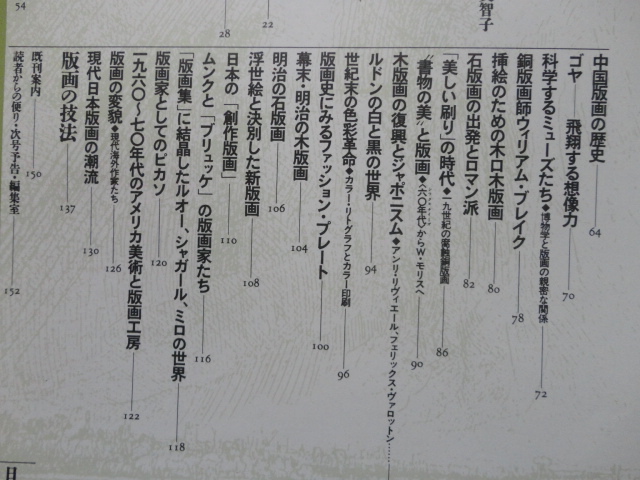 智子
22
28
54
中国版画の歴史 64
ゴヤ──飛翔する想像力 70
科学するミューズたち◆博物学と版画の親密な関係 72
銅版画師ウィリアム・ブレイク 78
挿絵のための木口木版画 80
石版画の出発とロマン派 82
「美しい刷り」の時代◆一九世紀の腐蝕銅版画 86
〝書物の美〟と版画◆〈六〇年代〉からW・モリスへ 90
木版画の復興とジャポニスム◆アンリ・リヴィエール、フェリックス・ヴァロットン……
ルドンの白と黒の世界 94
世紀末の色彩革命◆カラー・リトグラフとカラー印刷 96
版画史にみるファッション・プレート 100
幕末・明治の木版画 104
明治の石版画 106
浮世絵と決別した新版画 108
日本の「創作版画」 110
ムンクと「ブリュッケ」の版画家たち 116
「版画集」に結晶したルオー、シャガール、ミロの世界 118
版画家としてのピカソ 120
一九六〇〜七〇年代のアメリカ美術と版画工房 122
版画の変貌◆現代海外作家たち 126
現代日本版画の潮流 130
版画の技法 137
既刊案内 150
読者からの便り・次号予告・編集室 152
日